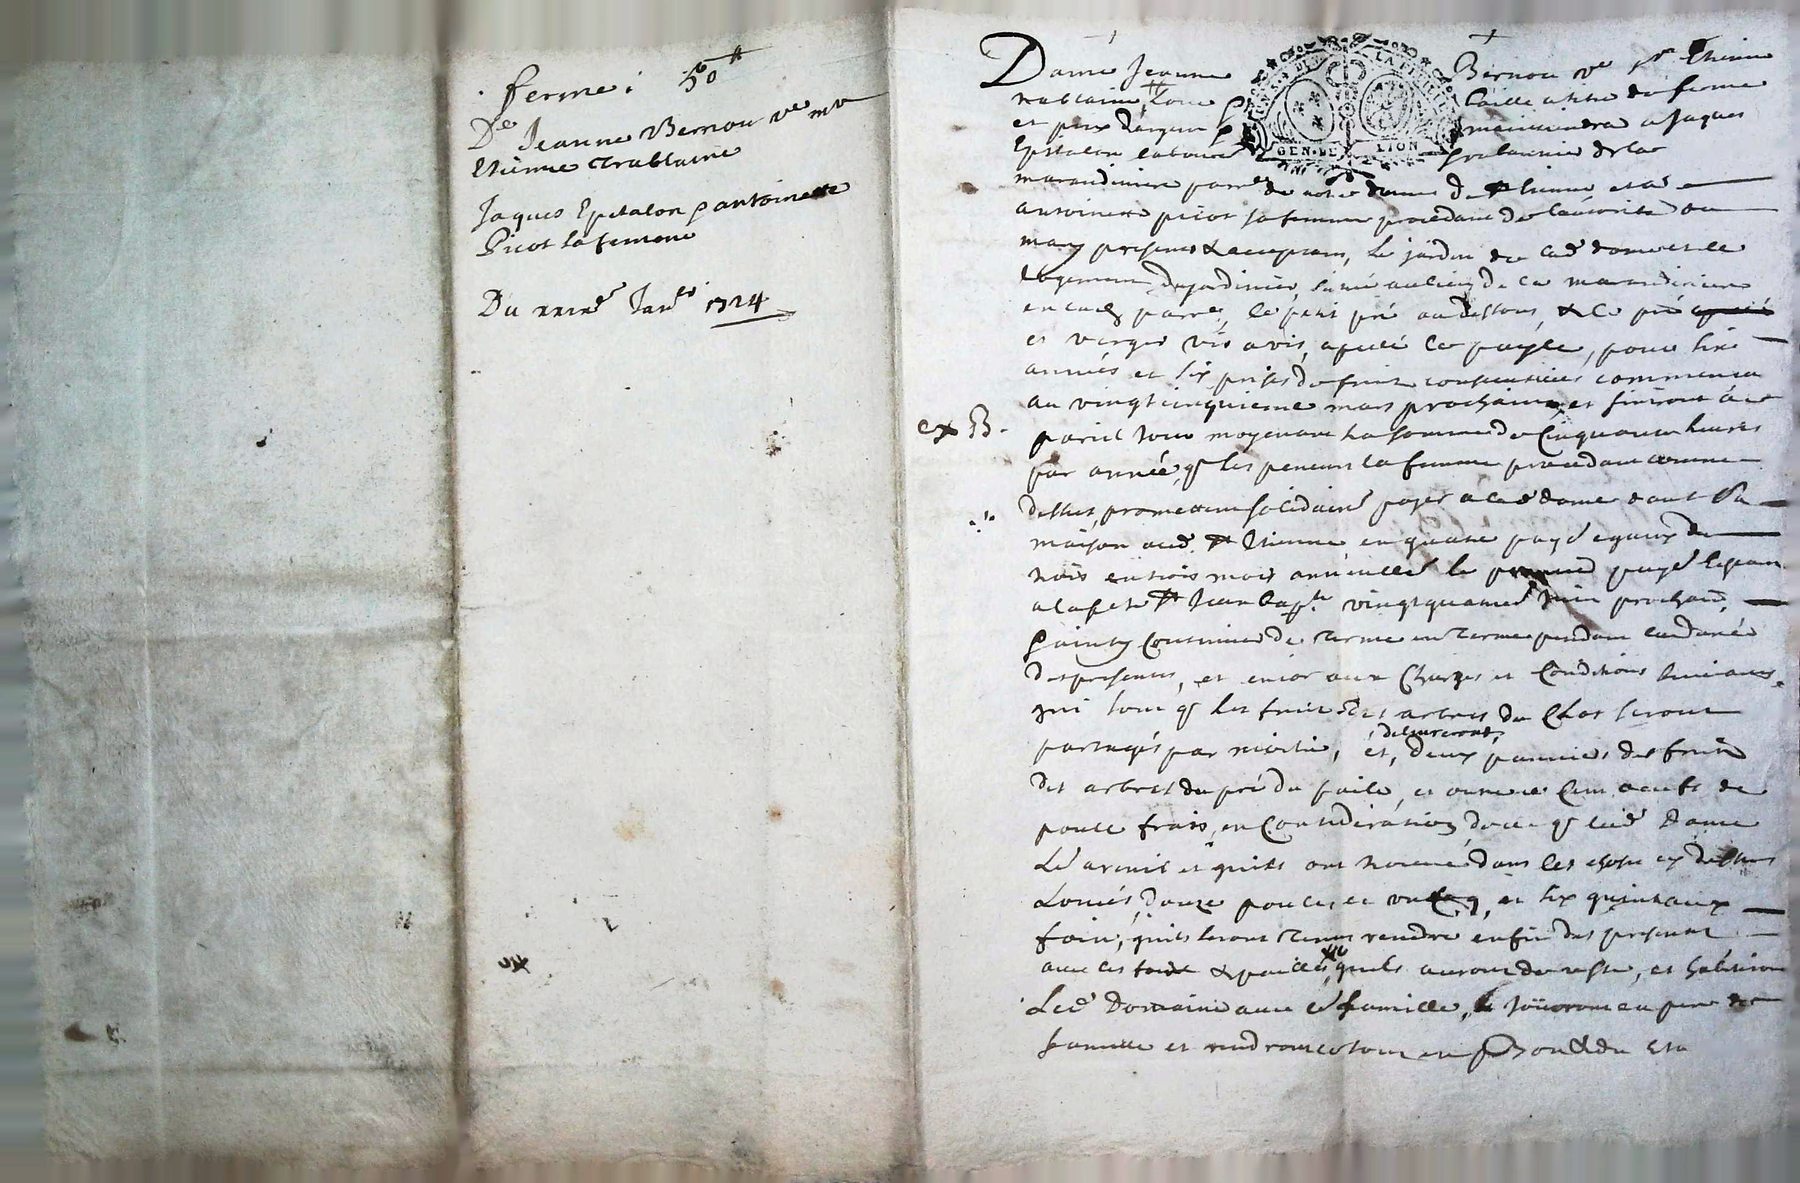 ferme : 50#
De Jeanne Bernou ve mr
Etienne Trablaine
Jaques Epitalon & antoinette
Picot sa femme
Du xxixe Janer 1724
Dame Jeanne Bernou ve Sr Ethienne
trablaine, Loue baille a titre de ferme
et prix dargent a Jaques
Epitalon laboureur de la
GEN. DE LION
marandiniere parre de notre dame de St Etienne et a
antoinette picot sa femme procedant de lautorité du
mary presents & acceptans, le jardin de lad dame et le
logement du jardinier, situé au lieu de la marandiniere
en lad parre, le petit pré au dessous, & le pré
et verger vis a vis, apellé le payle, pour six
années et six prises de fruits consecutives commencer
au vingtcinquieme mars prochain et finiront à
ex B.
pareil Jour moyenant la somme de Cinquante livres
par année, q les preneurs la femme procedant comme
dessus, promettent solidairet payer a lad dame dans sa
maison aud St Etienne en quatre payes egaux de
trois en trois mois annuellet le premier paye
a la fete St Jean bapte vingtquatre Juin prochain,
Continuer de terme en terme pendant
des presentes, et encor aux Charges et Conditions suivantes,
qui sont q les fruits des arbres du Clos seront
partagés par moitié, et, deux panniers des fruits
delivreront
des arbres du pré du paile, et outre ce Cent oeufs de
poule frais, en Consideration de ce q lad Dame
et quils ont trouvé dans les choses cy dessus
Louées, douze poules et un Coq, et six quintaux
foin, quils seront tenus rendre en fin des presentes
avec les foins & pailles quils auront de reste, et habiteront
Led Domaine avec famille, Joüiront en pere de
famille et rendront le tout en bon & du Etat